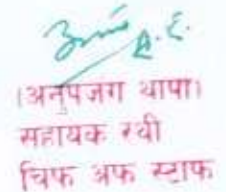 A.E.
(अनुपजंग थापा)
सहायक रथी
चिफ अफ स्टाफ